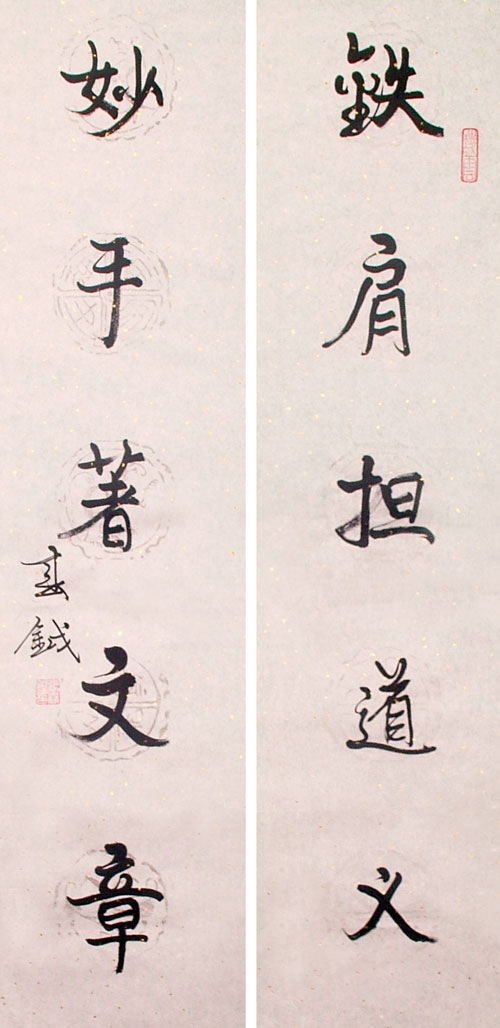 鉄肩担道义
妙手著文章